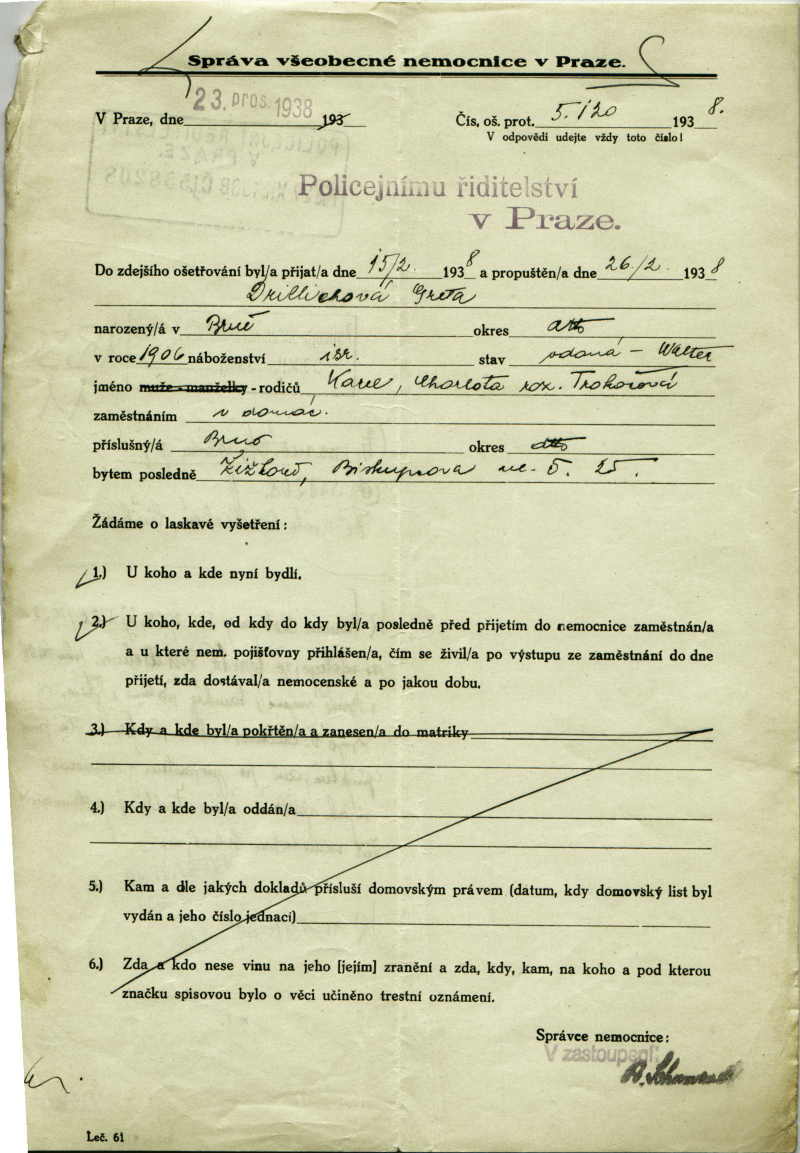 Správa všeobecné nemocnice v Praze.
V Praze, dne 23. pros. 1938 193
Čís. oš. prot. 5.120 1938.
V odpovědi udejte vždy toto číslo!
Policejnímu řiditelství
v Praze.
Do zdejšího ošetřování byl/a přijat/a dne 15/2 1938 a propuštěn/a dne 26./2. 1938
Drillichová Greta
narozený/á v Brně okres
v roce 1906 náboženství isr. stav vdaná – Walter
jméno muže - manželky - rodičů Karel, Charlota roz.
zaměstnáním v domác.
příslušný/á Brno okres
bytem posledně Žižkov, Biskupcova ul. č. 25.
Žádáme o laskavé vyšetření:
1.) U koho a kde nyní bydlí.
2.) U koho, kde, od kdy do kdy byl/a posledně před přijetím do nemocnice zaměstnán/a
a u které nem. pojišťovny přihlášen/a, čím se živil/a po výstupu ze zaměstnání do dne
přijetí, zda dostával/a nemocenské a po jakou dobu.
3.) Kdy a kde byl/a pokřtěn/a a zanesen/a do matriky
4.) Kdy a kde byl/a oddán/a
5.) Kam a dle jakých dokladů přísluší domovským právem (datum, kdy domovský list byl
vydán a jeho číslo jednací)
6.) Zda a kdo nese vinu na jeho [jejím] zranění a zda, kdy, kam, na koho a pod kterou
značku spisovou bylo o věci učiněno trestní oznámení.
Správce nemocnice:
V zastoupení:
Leč. 61